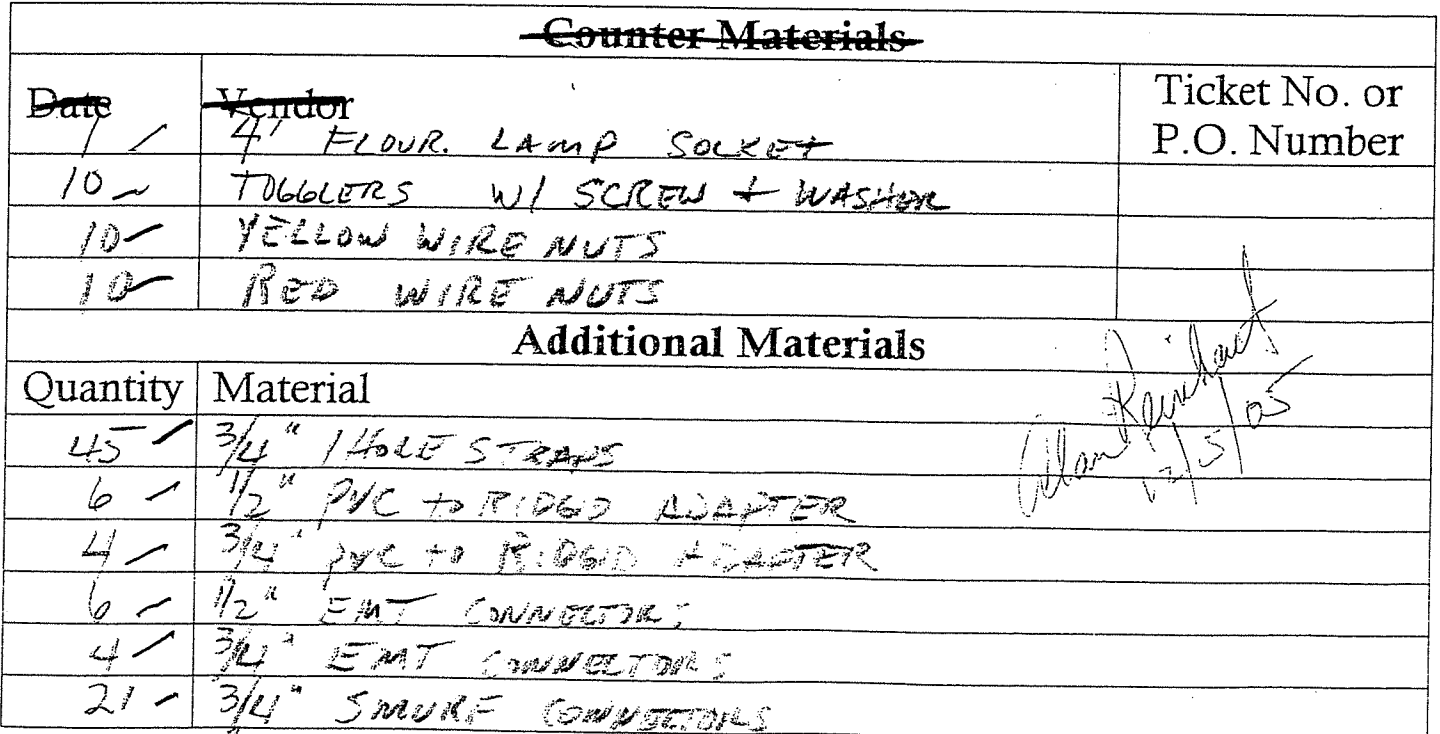 Counter Materials
Date Vendor Ticket No. or P.O. Number
1 4' FLOUR. LAMP SOCKET
10 TOGGLERS W/ SCREW + WASHER
10 YELLOW WIRE NUTS
10 RED WIRE NUTS
Additional Materials
Quantity Material
45 3/4" 1 HOLE STRAPS
6 1/2" PVC to RIDGID ADAPTER
4 3/4" PVC to RIDGID ADAPTER
6 1/2" EMT CONNECTORS
4 3/4" EMT CONNECTORS
21 3/4" SMURF CONNECTORS
Alan Reinhardt
12/5/05